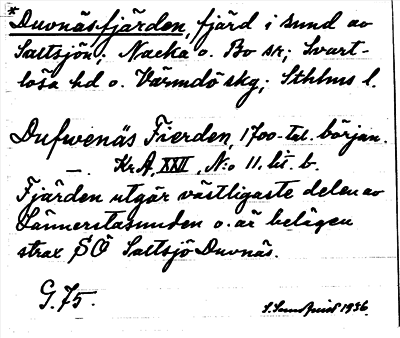 *Duvnäsfjärden, fjärd i sund av
Saltsjön; Nacka o. Bo sk; Svart-
lösa hd o. Värmdö skg; Sthlms l.
Dufwenäs Fierden, 1700-tal. början.
— . Kr.A, XXII, N:o 11. lit. b.
Fjärden utgör västligaste delen av
Lännerstasunden o. är belägen
strax SÖ Saltsjö-Duvnäs.
G. 75.
1936.